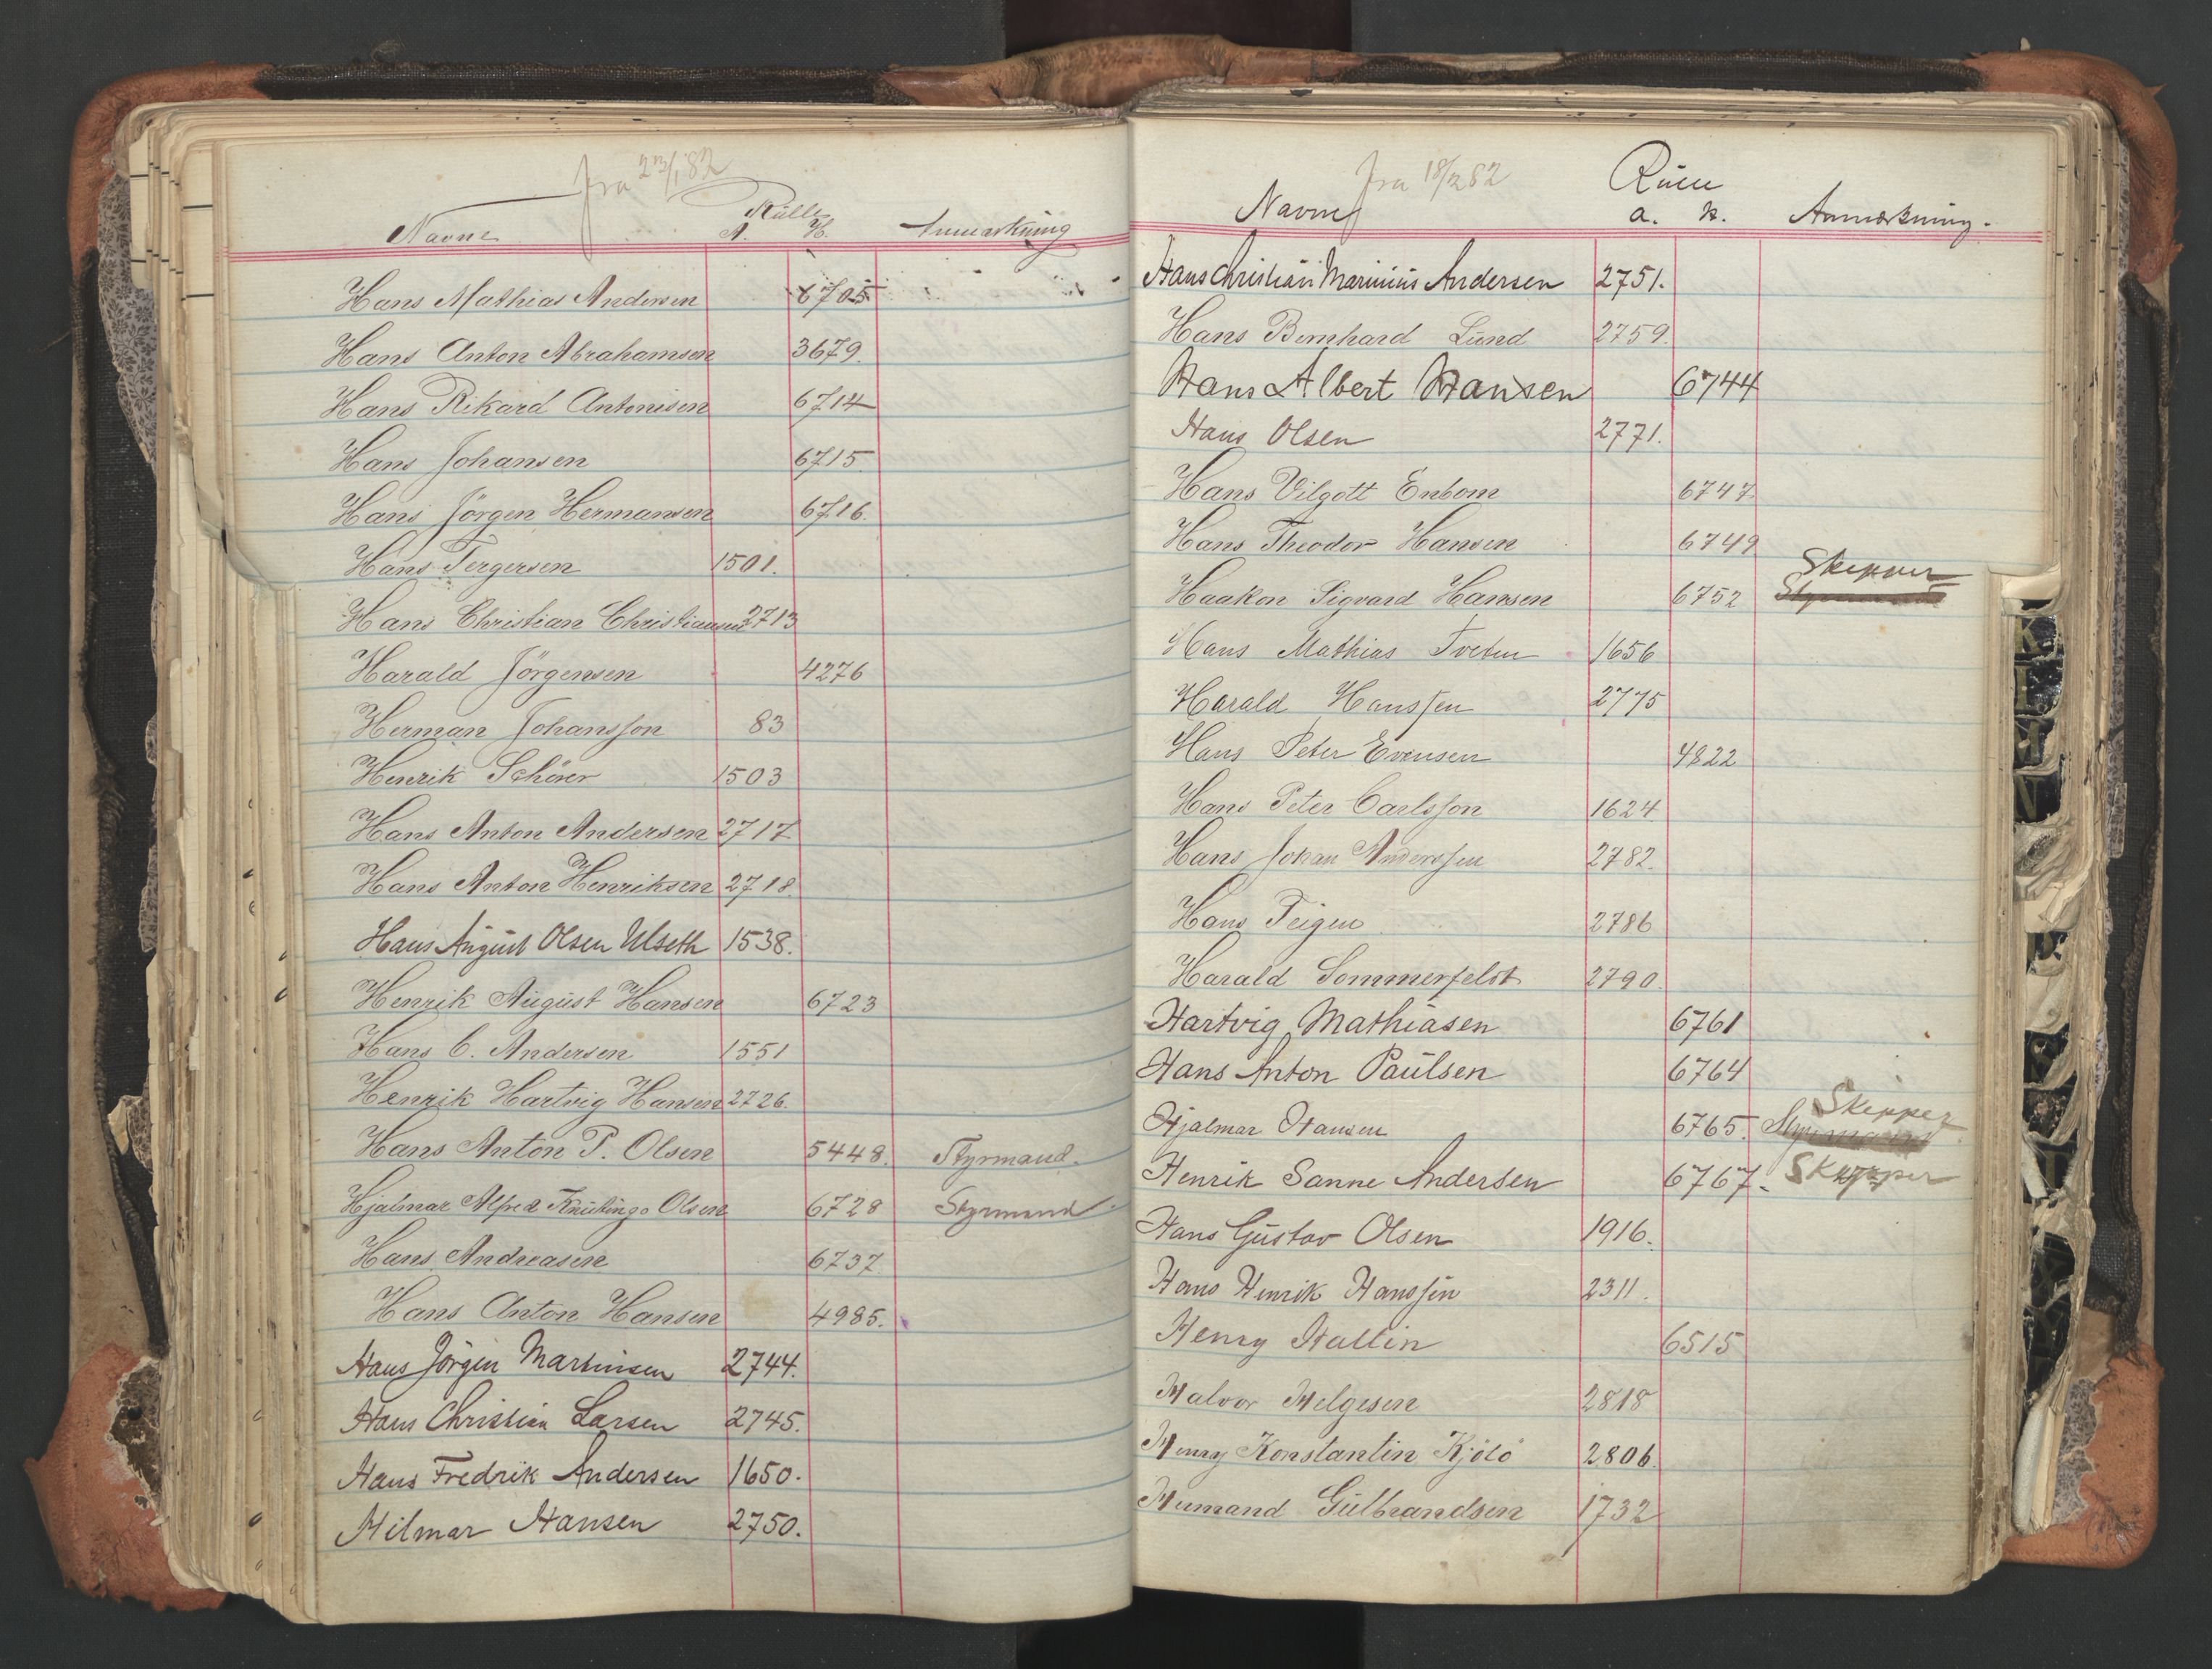 fra 23/1 82
Navne Rulle Anmærkning
A. H.
Hans Mathias Andersen 6705
Hans Anton Abrahamsen 3679.
Hans Rikard Antonisen 6714
Hans Johansen 6715.
Hans Jörgen Hermansen 6716.
Hans Tergersen 1501.
Hans Christian Christiansen 2713
Harald Jörgensen 4276
Herman Johansson 83
Henrik Schörer 1503
Hans Anton Andersen 2717
Hans Anton Henriksen 2718
Hans August Olsen Ulseth 1538.
Henrik August Hansen 6723
Hans C. Andersen 1551
Henrik Hartvig Hansen 2726.
Hans Anton P. Olsen 5448. Styrmand.
Hjalmar Alfred Olsen 6728 Styrmand
Hans Andreasen 6737
Hans Anton Hansen 4985.
Hans Jörgen Martinsen 2744.
Hans Christian Larsen 2745.
Hans Fredrik Andersen 1650.
Hilmar Hansen 2750.
fra 18/2 82
Navne Rulle Anmærkning.
a. h.
Hans Christian Marinius Andersen 2751.
Hans Bernhard Lund 2759.
Hans Albert Hansen 6744
Hans Olsen 2771.
Hans Vilgott Enbom 6747
Hans Theodor Hansen 6749
Skipper
Haakon Sigvard Hansen 6752 Styrmand
Hans Mathias Tveten 1656
Harald Hanssen 2775
Hans Peter Evensen 4822
Hans Peter Carlsson 1624
Hans Johan Anderssen 2782.
Hans Teigen 2786
Harald Sommerfeldt 2790.
Hartvig Mathiasen 6761
Hans Anton Paulsen 6764
Skipper
Hjalmar Hansen 6765. Styrmand
Henrik Sanne Andersen 6767. Skipper
Hans Gustav Olsen 1916.
Hans Henrik Hanssen 2311.
Henry Hallin 6515
Halvor Helgesen 2818
Henry Konstantin Kjölö 2806.
Hemand Gulbrandsen 1732